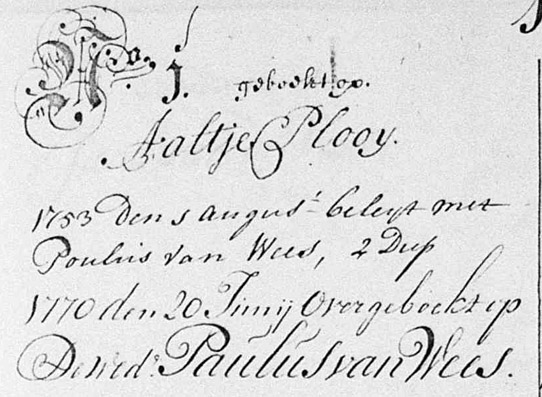 No. 1. geboekt op.
Aaltje Plooy.
1753 den 1 augus.t beleyt met
Poulus van Wees, 2 Diep
1770 den 20 Junij Overgeboekt op
De wed.e Paulus van Wees.